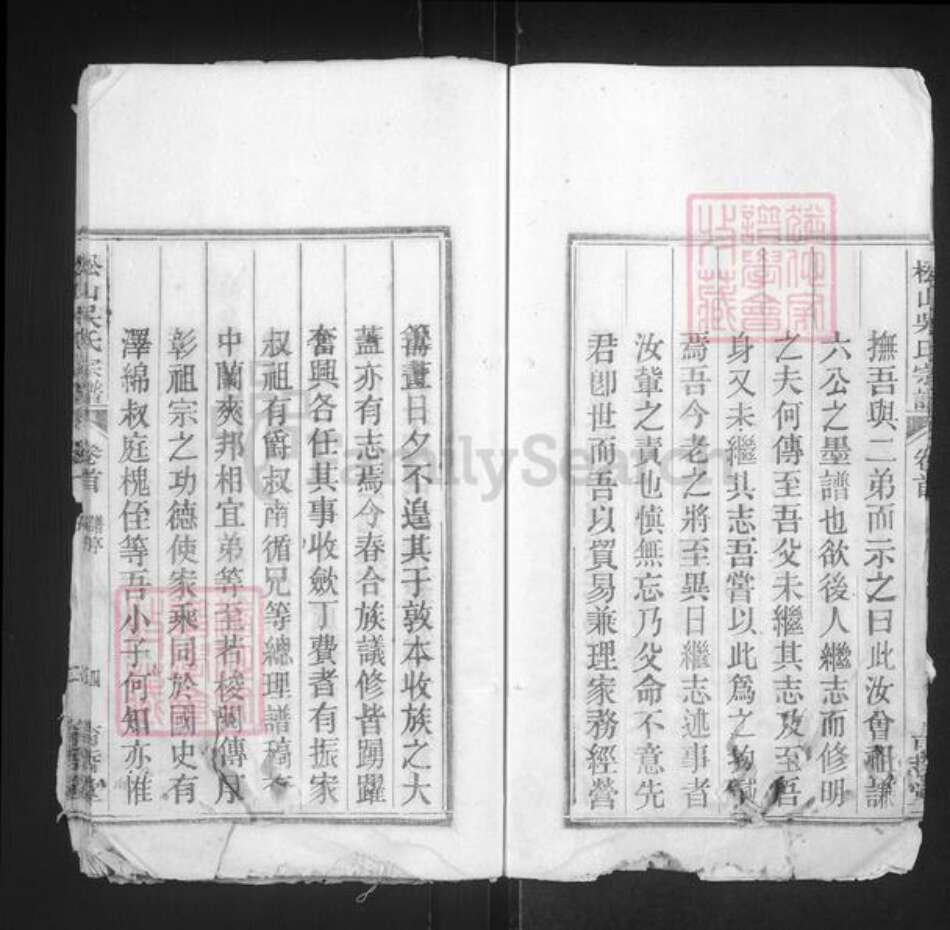 松山吳氏宗譜 卷首
撫吾與二弟而示之曰此汝曾祖謙
六公之墨譜也欲後人繼志而修明
之夫何傳至吾父未繼其志及至吾
身又未繼其志吾嘗以此爲之拘
焉吾今老之將至異日繼志述事者
汝輩之責也慎無忘乃父命不意先
君卽世而吾以貿易兼理家務經營
籌畫日夕不遑其于敦本收族之大
蓋亦有志焉今春合族議修皆踴躍
奮興各任其事收斂丁費者有振家
叔祖有爵叔南循兄等總理譜稿
中蘭爽邦相宜弟等至若梭關傳序
彰祖宗之功德使家乘同於國史有
澤綿叔庭槐侄等吾小子何知亦惟
松山吳氏宗譜 卷首 譜序 四
譜學會
收藏
FamilySearch